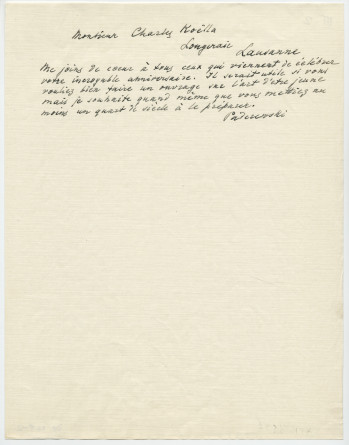 Monsieur Charles Koëlla
Longeraie
Lausanne
Me joins de coeur à tous ceux qui viennent de célébrer
votre incroyable anniversaire. Il serait utile si vous
vouliez bien faire un ouvrage sur l'art d'être jeune
mais je souhaite quand même que vous mettiez au
moins un quart de siècle à le préparer.
Paderewski